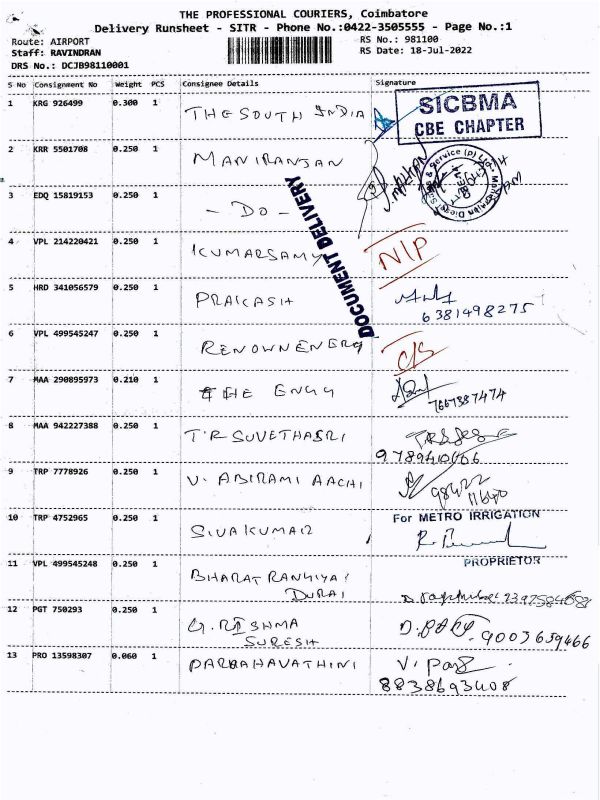 THE PROFESSIONAL COURIERS, Coimbatore
Delivery Runsheet - SITR - Phone No.:0422-3505555 - Page No.:1
Route: AIRPORT
RS No.: 981100
Staff: RAVINDRAN
RS Date: 18-Jul-2022
DRS No.: DCJB98110001
S No Consignment No Weight PCS Consignee Details Signature
1 KRG 926499 0.300 1 THE SOUTH INDIA
SICBMA
CBE CHAPTER
2 KRR 5501708 0.250 1 MANIRANJAN
3 EDQ 15819153 0.250 1 - DO -
DOCUMENT DELIVERY
4 VPL 214220421 0.250 1 KUMARSAMY N/P
5 HRD 341056579 0.250 1 PRAKASH
6381498275
6 VPL 499545247 0.250 1 RENOWNENERG C/S
7 MAA 290895973 0.210 1 THE ENGG
7667387474
8 MAA 942227388 0.250 1 T.R SUVETHASRI
9789410466
9 TRP 7778926 0.250 1 V. ABIRAMI AACHI
98422
11640
10 TRP 4752965 0.250 1 SIVAKUMAR
For METRO IRRIGATION
PROPRIETOR
11 VPL 499545248 0.250 1 BHARAT RANGIYA
DURAI
12 PGT 750293 0.250 1 G. RESHMA
SURESH
9003639466
13 PRO 13598307 0.060 1 PARBAHAVATHINI
8838693408